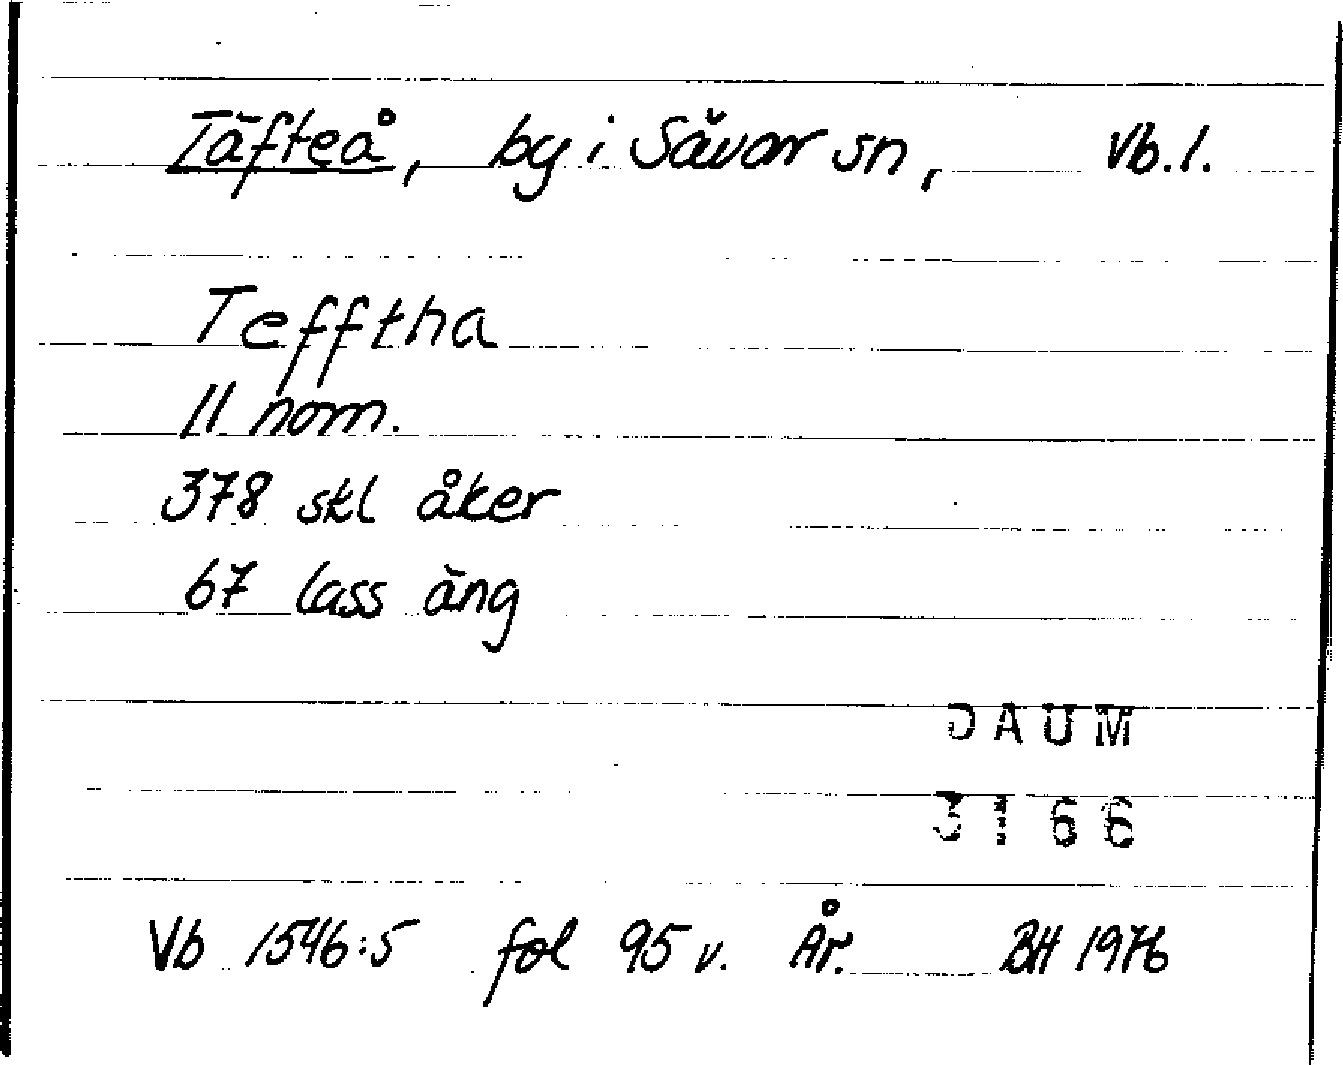 Täfteå, by i Sävar sn, Vb. l.
Tefftha
11 nom.
378 skl åker
67 lass äng
DAUM
3166
Vb 1546:5 fol 95 v. År. BH 1976